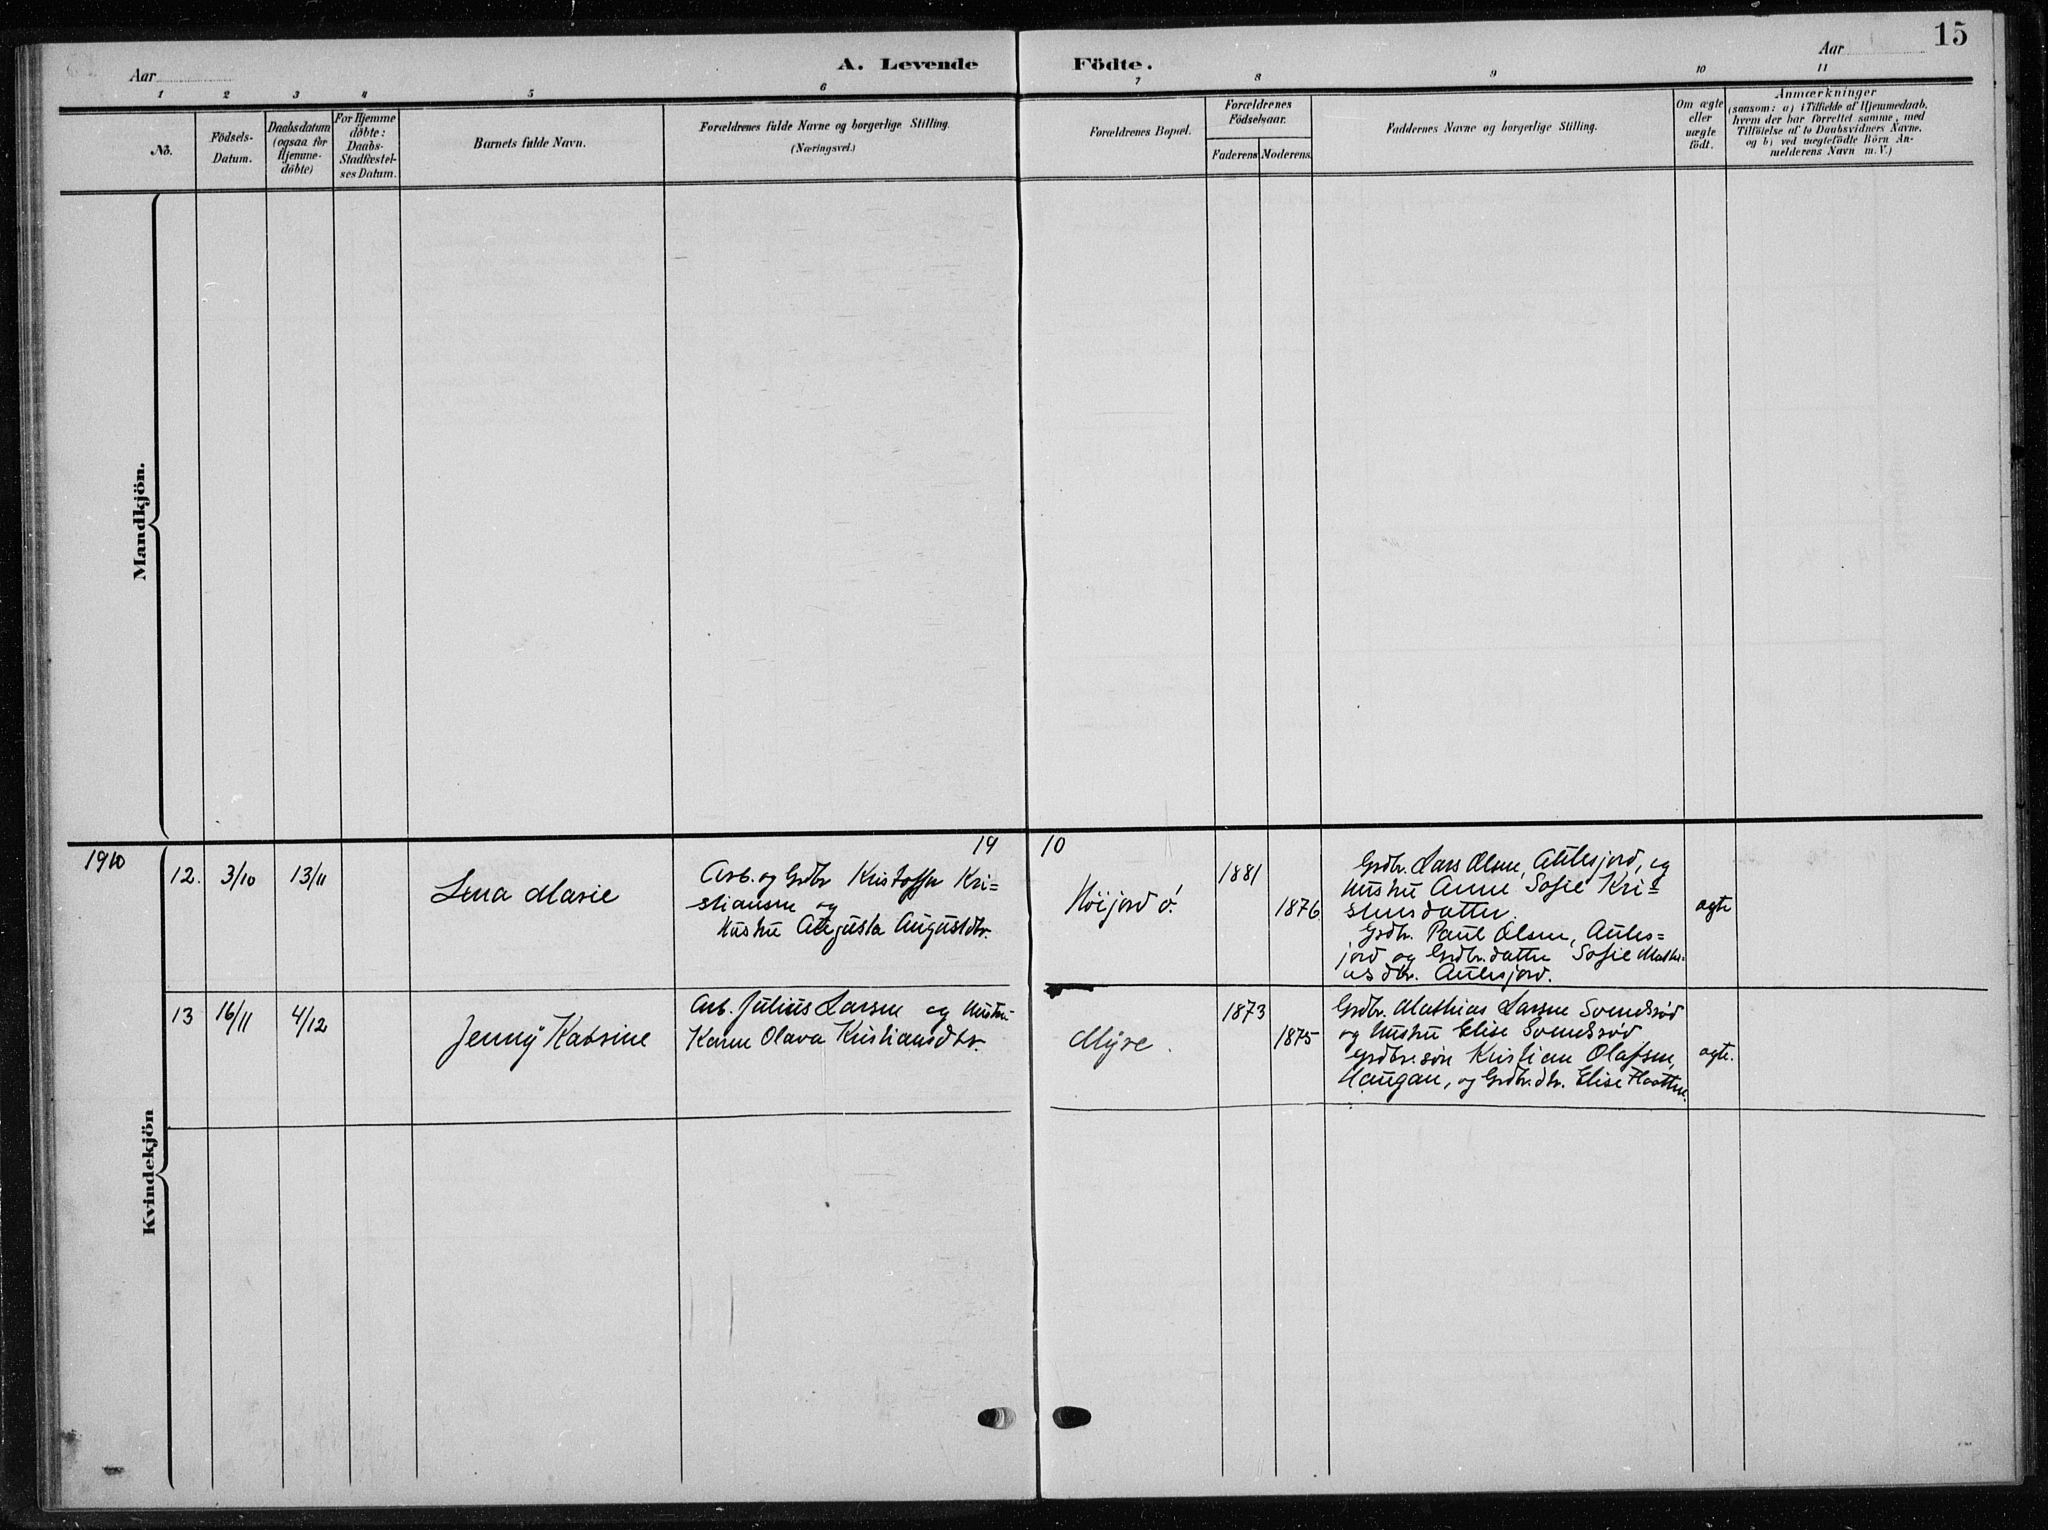 15
Aar
A. Levende Födte.
Aar
1 2 3 4 5 6 7 8 9 10 11
No.
Födsels-
Datum.
Daabsdatum
(ogsaa for
Hjemme-
døbte)
For Hjemme
døbte:
Daabs-
Stadfæstel-
ses Datum.
Barnets fulde Navn.
Forældrenes fulde Navne og borgerlige Stilling.
(Næringsvei.)
Forældrenes Bopæl.
Forældrenes
Födselsaar.
Faderens. Moderens.
Faddernes Navne og borgerlige Stilling.
Om ægte
eller
uægte
født.
Anmærkninger
(saasom: a) i Tilfælde af Hjemmedaab,
hvem der har forrettet samme, med
Tilföielse af to Daabsvidners Navne.
og b) ved uægtefödte Börn An-
melderens Navn m. V.)
Mandkjön.
Kvindekjön
1910
19 10
12. 3/10 13/11
Lena Marie
Arb. og Grdbr Kristoffer Kri=
stiansen og
Hustru Augusta Augustdtr.
Höijord ö.
1881
1876
Grdbr. Lars Olsen, Aulesjord, og
Hustru Anne Sofie Kri=
stensdatter.
Grdbr. Paul Olsen, Aules=
jord og Grdbr.datter Sofie Mathi-
asdtr. Aulesjord.
ægte
13 16/11 4/12
Jenny Katrine
Arb. Julius Larsen og Hustru
Karen Olava Kristiansdtr.
Myre.
1873
1875
Grdbr. Mathias Larsen Svendsrød
og Hustru Elise Svendsrød
Grdbr.søn Kristian Olafsen,
Haugan, og Grdbr.dtr. Elise
ægte.